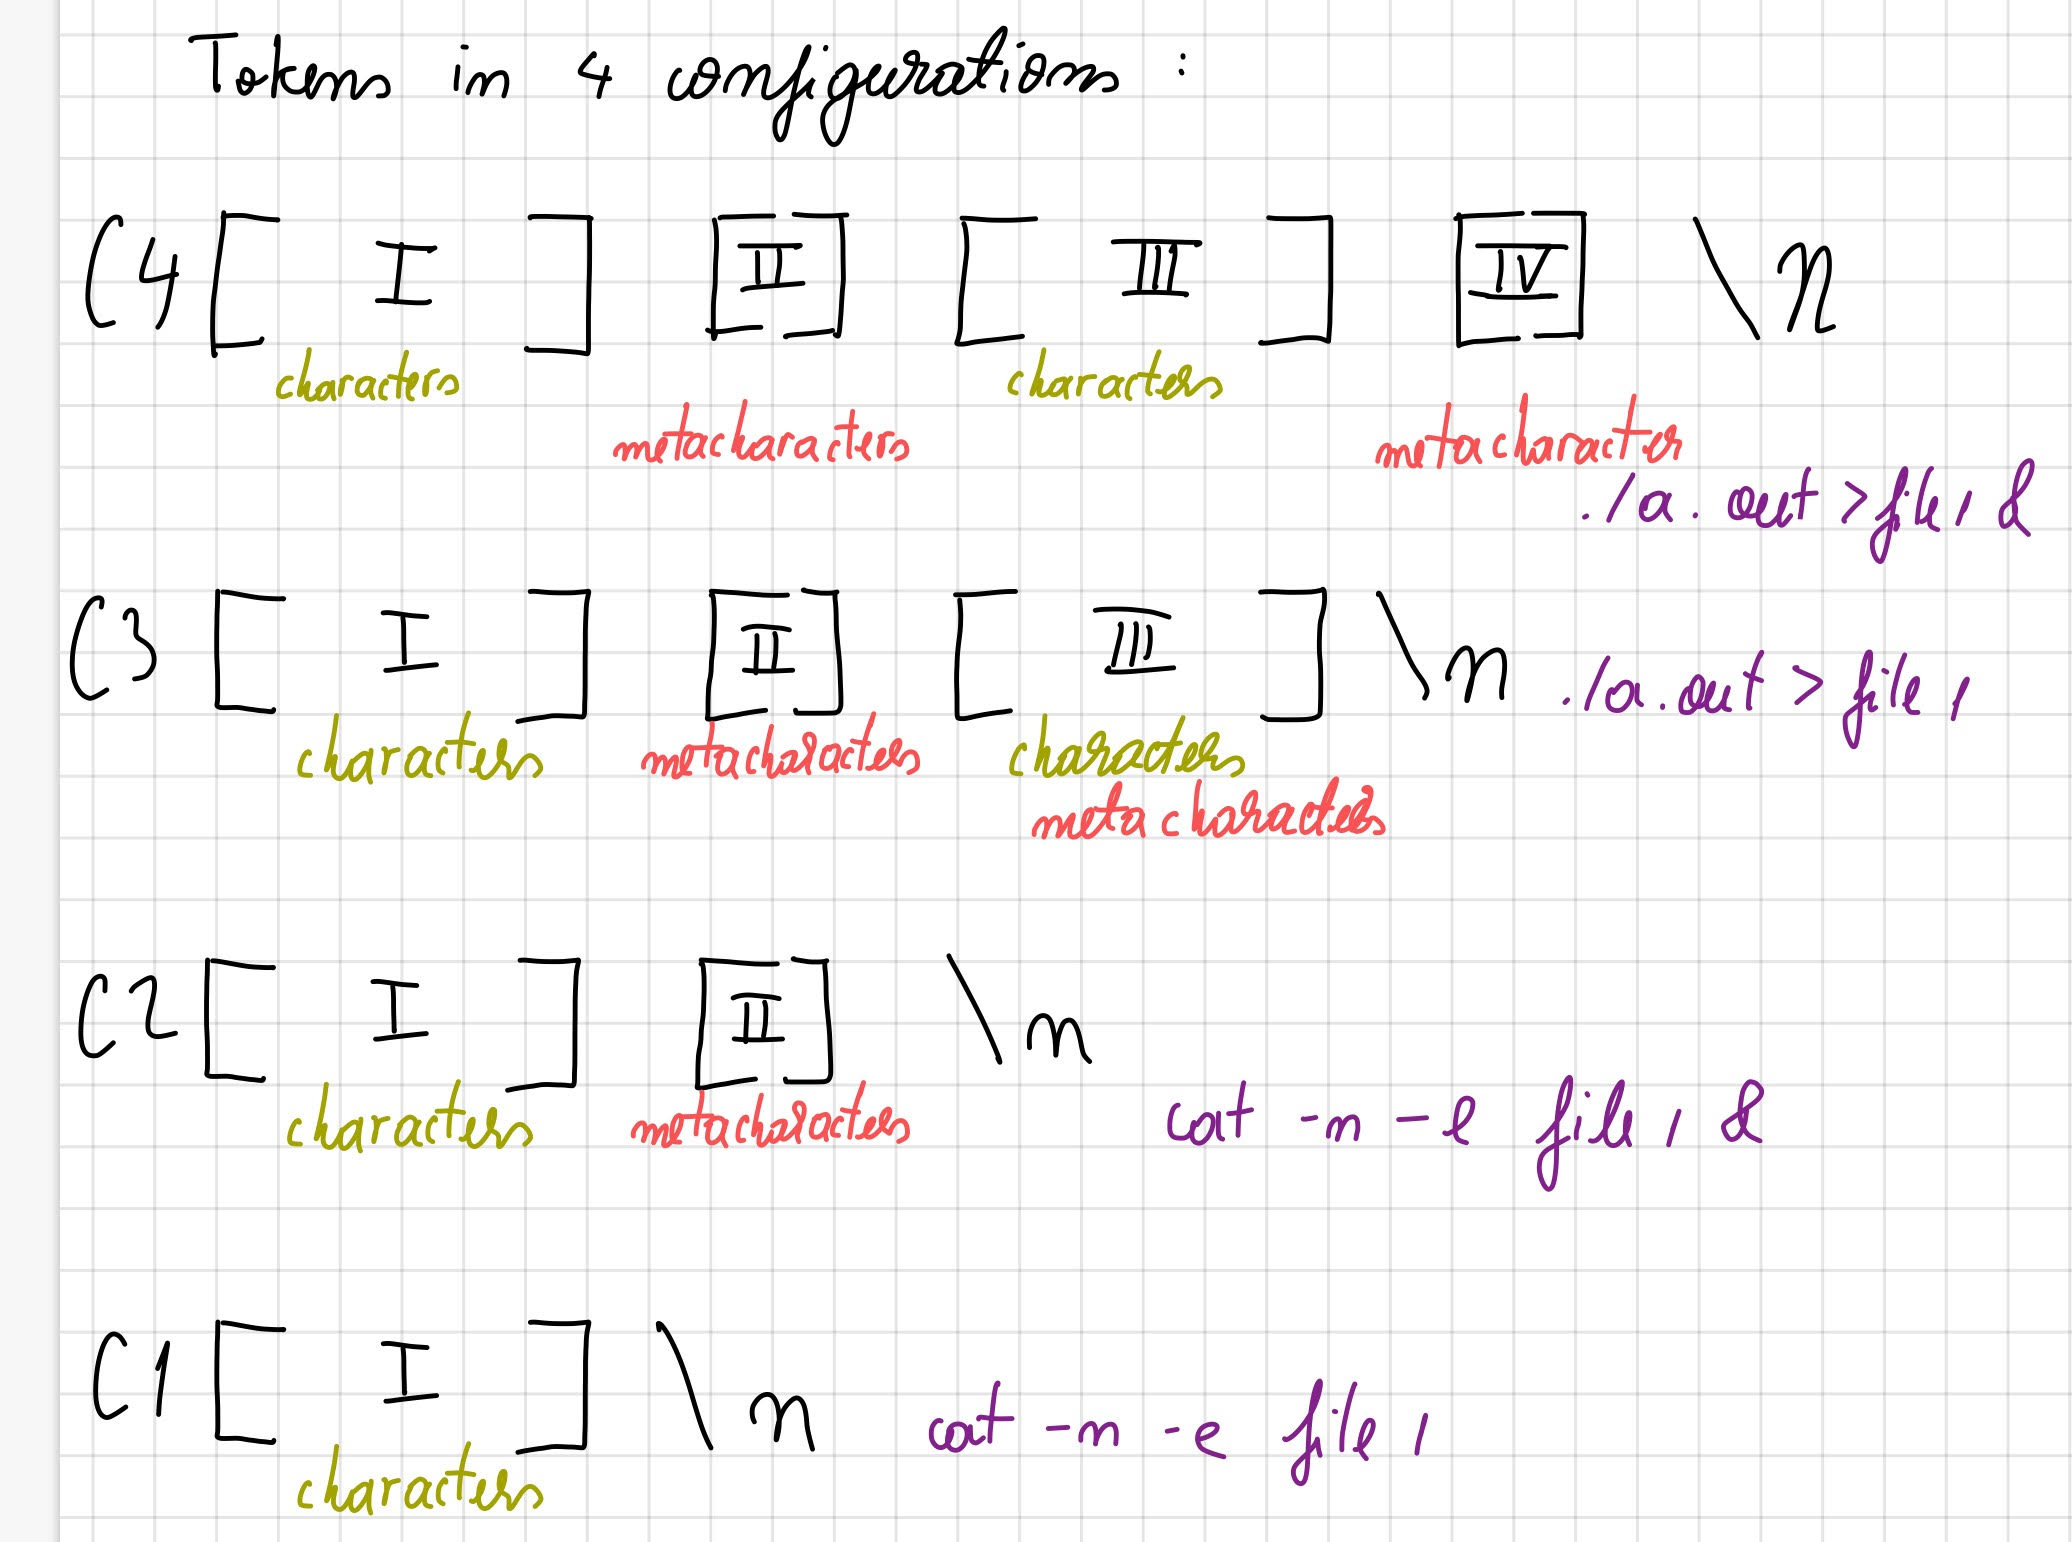 Tokens in 4 configurations :
C4 [ I ] [ II ] [ III ] [ IV ] \n
characters characters
metacharacters metacharacter
./a.out >file1 &
C3 [ I ] [ II ] [ III ] \n ./a.out > file1
characters metacharacters characters
metacharacters
C2 [ I ] [ II ] \n
characters metacharacters cat -n -e file1 &
C1 [ I ] \n cat -n -e file1
characters